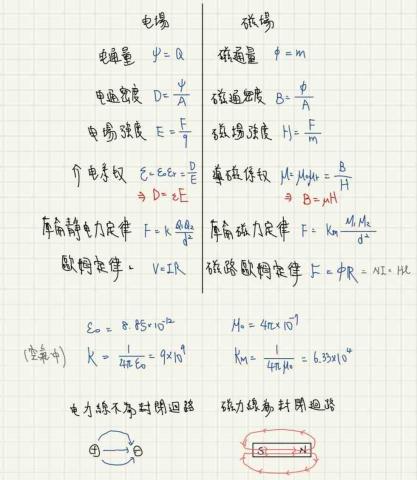 电場 磁場
电通量 ψ = Q 磁通量 ϕ = m
电通密度 D = ψ/A 磁通密度 B = ϕ/A
电場強度 E = F/q 磁場強度 H = F/m
介电系數 ε = ε₀εr = D/E 導磁係數 μ = μ₀μr = B/H
⇒ D = εE ⇒ B = μH
庫侖靜电力定律 F = K Q₁Q₂/d² 庫侖磁力定律 F = Km M₁M₂/d²
歐姆定律 V = IR 磁路歐姆定律 F = ϕR = NI = Hl
ε₀ = 8.85×10⁻¹² μ₀ = 4π×10⁻⁷
(空氣中) K = 1/4πε₀ = 9×10⁹ Km = 1/4πμ₀ = 6.33×10⁴
电力線不為封閉迴路 磁力線為封閉迴路
+ − S N